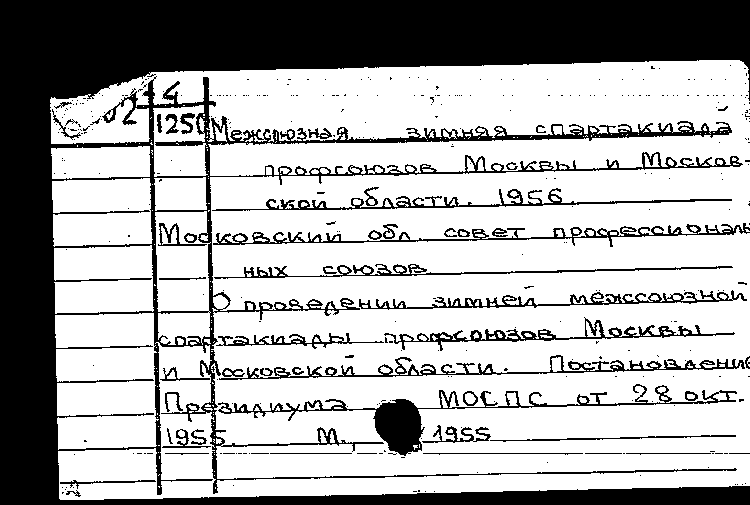 4
02 1250 Межсоюзная зимняя спартакиада
профсоюзов Москвы и Москов-
ской области. 1956.
Московский обл. совет профессиональ
ных союзов
О проведении зимней межсоюзной
спартакиады профсоюзов Москвы
и Московской области. Постановление
Президиума МОСПС от 28 окт.
1955. М., 1955